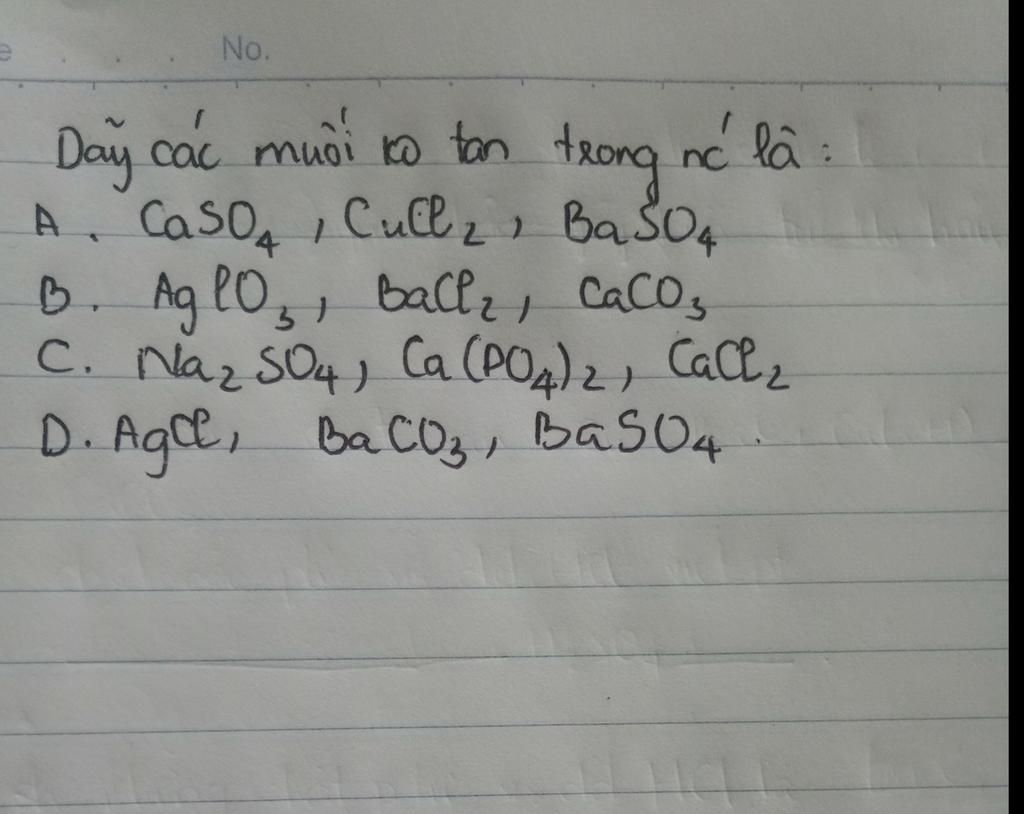 No.
Dãy các muối ko tan trong nć là :
A. CaSO4, CuCl2, BaSO4
B. AglO3, BaCl2, CaCO3
C. Na2SO4, Ca(PO4)2, CaCl2
D. AgCl, BaCO3, BaSO4.